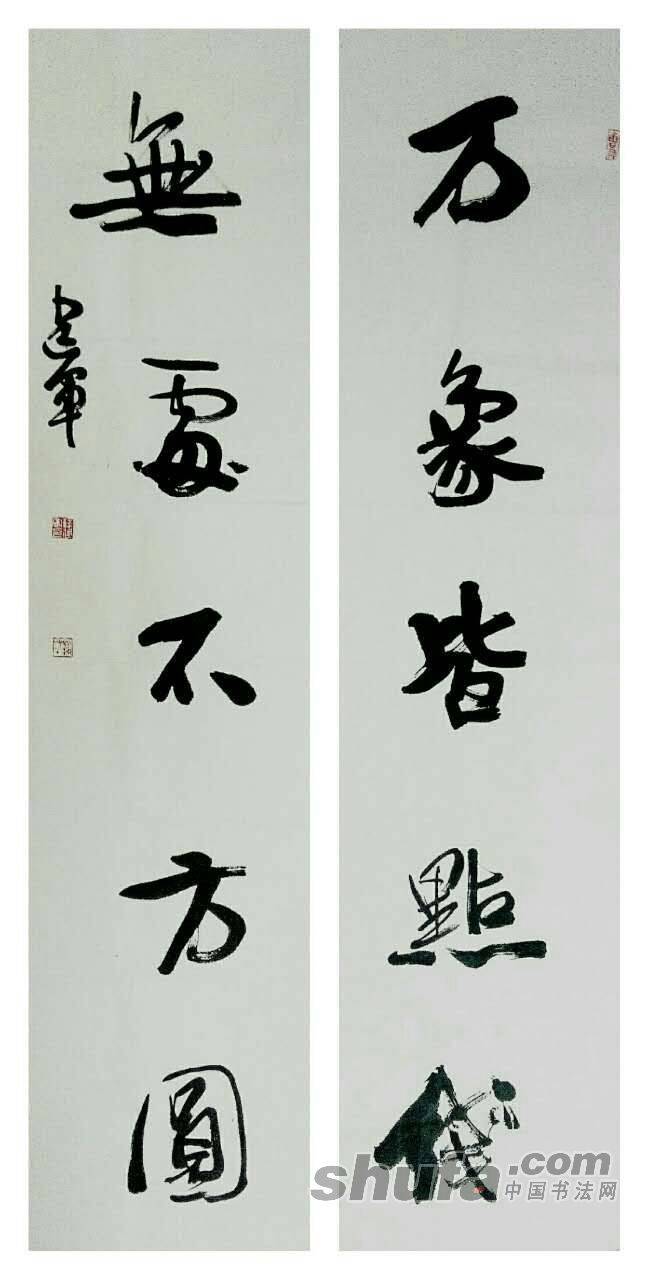 万象皆點綫
無處不方圓
建軍
shufa.com
中国书法网